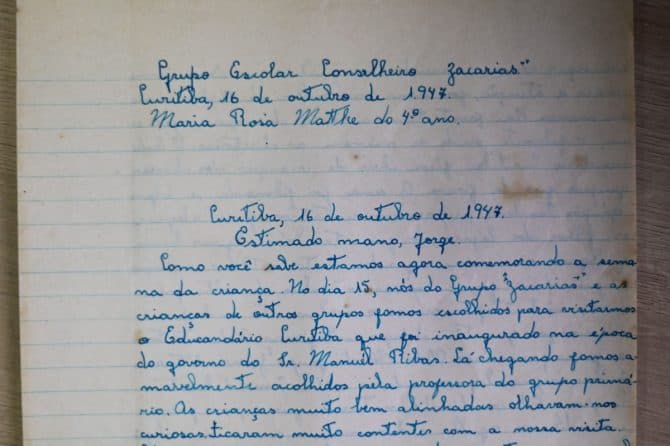 Grupo Escolar Conselheiro Zacarias"
Curitiba, 16 de outubro de 1.947.
Maria Rosa Matthe do 4º ano.
Curitiba, 16 de outubro de 1.947.
Estimado mano, Jorge.
Como você sabe estamos agora comemorando a sema-
na da criança. No dia 15, nós do Grupo "Zacarias" e as
crianças de outros grupos fomos escolhidos para visitarmos
o Educandário Curitiba que foi inaugurado na época
do governo do Sr. Manuel Ribas. Lá chegando fomos a-
mavelmente acolhidos pela professora do grupo primá-
rio. As crianças muito bem alinhadas olhavam-nos
curiosas. ficaram muito contentes com a nossa visita.